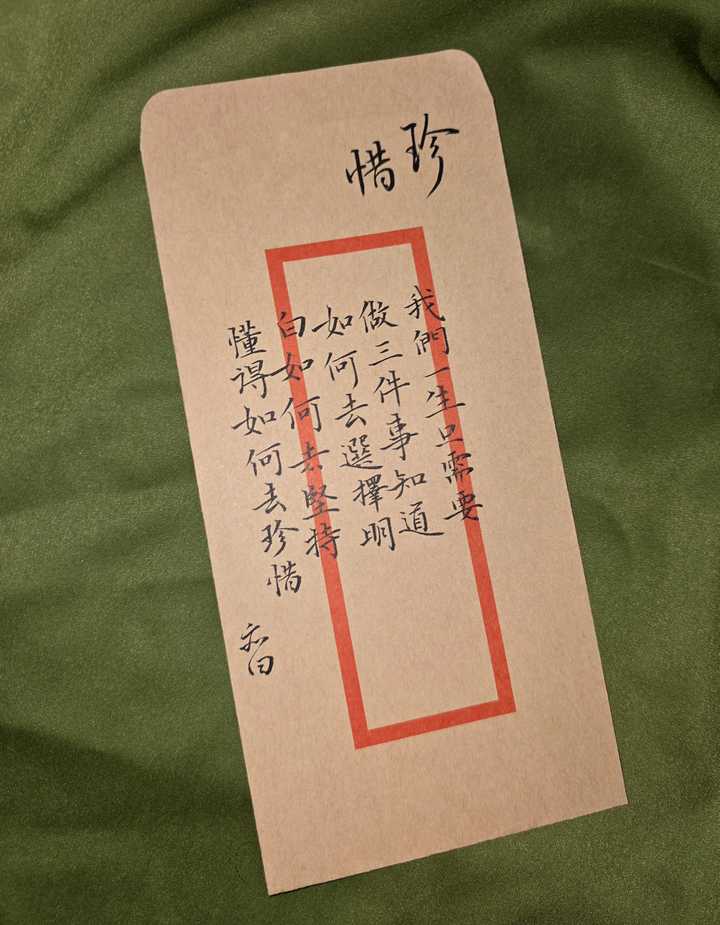 珍惜
我們一生只需要
做三件事知道
如何去選擇明
白如何去堅持
懂得如何去珍惜